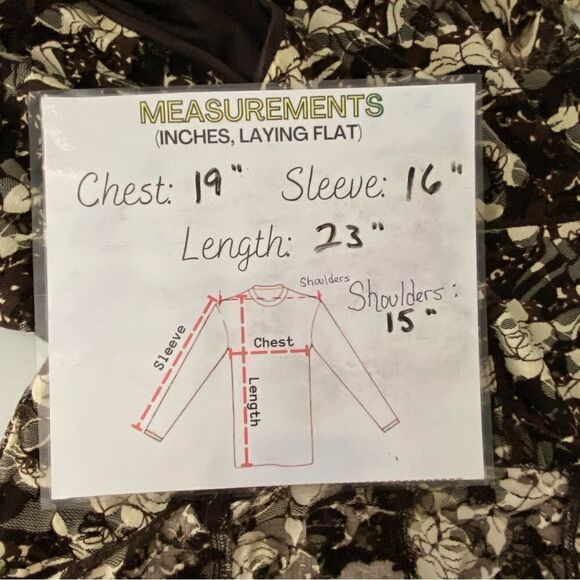 MEASUREMENTS
(INCHES, LAYING FLAT)
Chest: 19" Sleeve: 16"
Length: 23"
Shoulders
Shoulders:
15"
Sleeve
Chest
Length